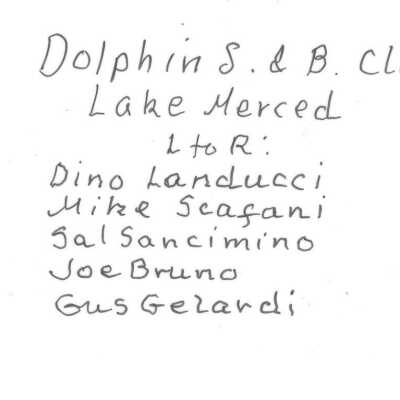 Dolphin S. & B. Cl
Lake Merced
L to R:
Dino Landucci
Mike Scafani
Sal Sancimino
Joe Bruno
Gus Gelardi